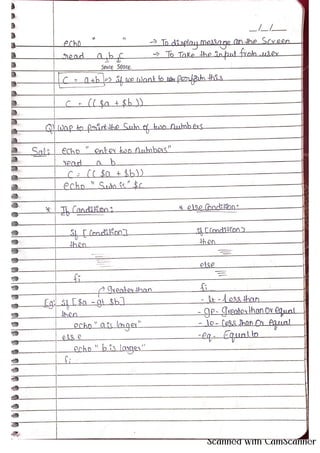 __/__/__
echo " " → To display message on the Screen
read a b c → To Take the input from user
space space
C = a+b → if we want to perform this
C = (( $a + $b ))
Q: Wap to print the Sum of two numbers
Sol: echo "enter two numbers"
read a b
C = (( $a + $b ))
echo "Sum is" $c
* If Condition: * else Condition:
If [ Condition ] if [ Condition ]
then then
else
fi fi
greater than
Eg: If [ $a -gt $b ] - lt - Less than
then - ge - greater than or equal
echo "a is larger" - le - less than or equal
else - eq - Equal to
echo "b is larger"
fi
Scanned with CamScanner